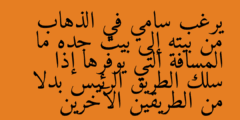 يرغب سامي في الذهاب
من بيته إلى بيت جده ما
المسافة التي يوفرها إذا
سلك الطريق الرئيس بدلا
من الطريقين الآخرين